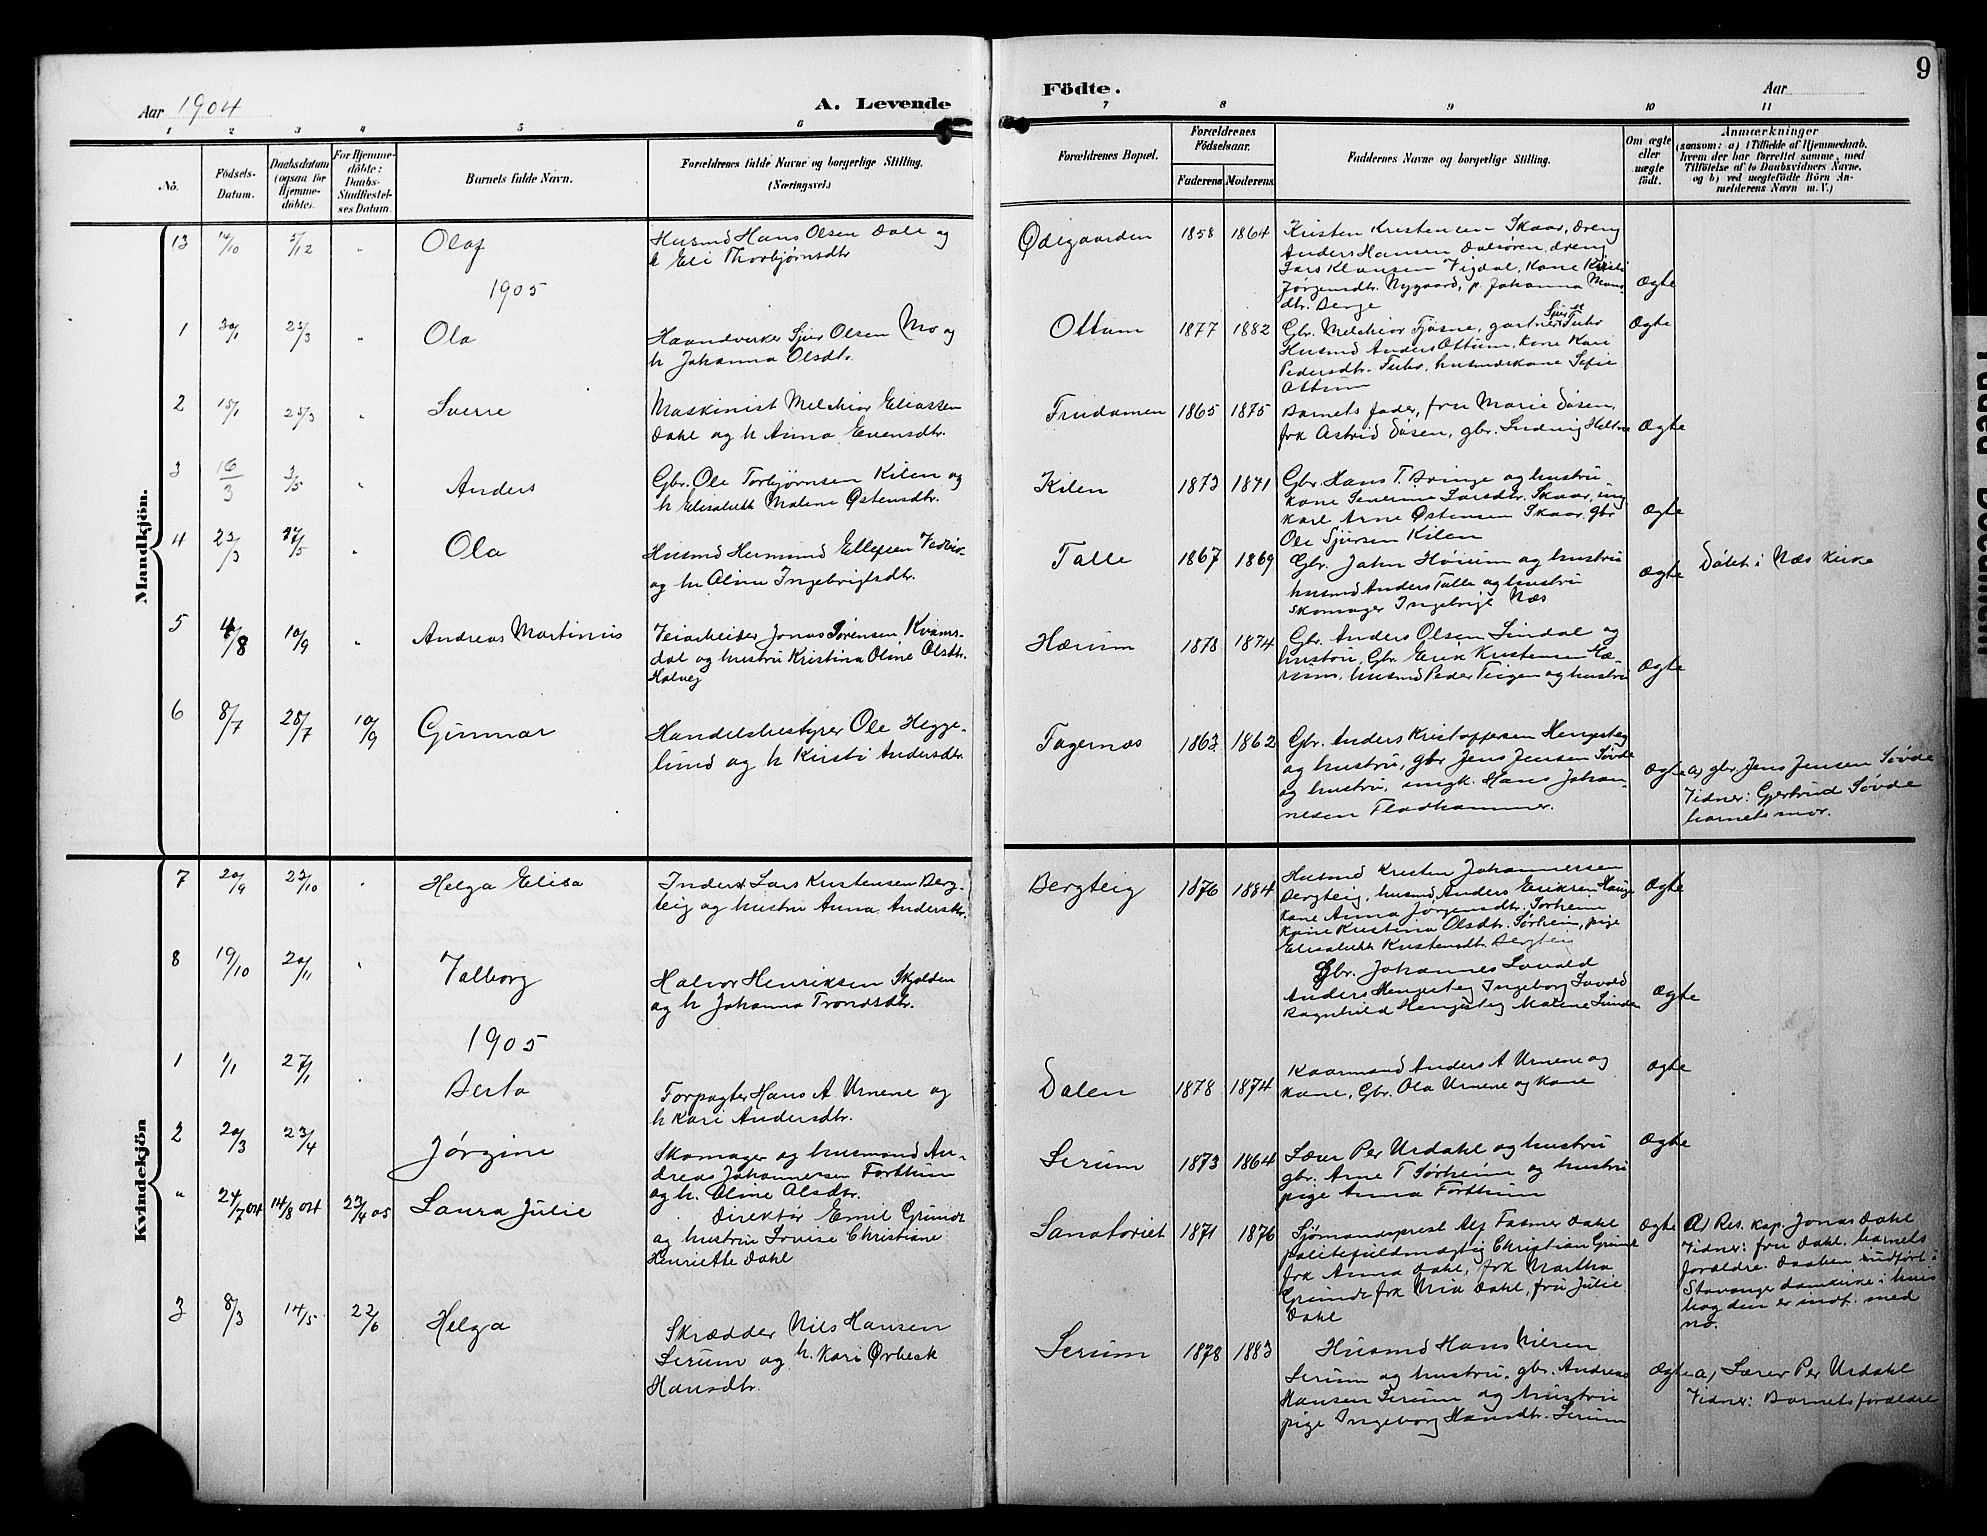 Aar 1904
A. Levende
Födte.
Aar
9
1 2 3 4 5 6 7 8 9 10 11
No.
Födsels-
Datum.
Daabsdatum
(ogsaa for
Hjemme-
döbte).
For Hjemme-
döbte:
Daabs-
Stadfæstel-
ses Datum.
Barnets fulde Navn.
Forældrenes fulde Navne og borgerlige Stilling.
(Næringsvei.)
Forældrenes Bopæl.
Forældrenes
Födselsaar.
Faderens
Moderens
Faddernes Navne og borgerlige Stilling.
Om ægte
eller
uægte
födt.
Anmærkninger
(saasom: a) i Tilfælde af Hjemmedaab,
hvem der har forrettet samme, med
Tilföielse af to Daabsvidners Navne,
og b) ved uægtefödte Börn An-
melderens Navn m. V.)
Mandkjön.
13 14/10 5/12 " Olaf
Husmd Hans Olsen Dale og
h Eli Thorbjørnsdtr
Ødegaarden 1858 1864
Kristen Kristensen Skaar, dreng
Anders Hansen Dalsøren, dreng
Lars Klausen Vigdal, Kone Kristi
Jørgensdtr. Nygaard, p. Johanna Mons-
dtr. Berge
Ægte
1905
1 30/1 25/3 " Ola
Haandverker Sjur Olsen Mo og
h Johanna Olsdtr.
Ottum 1877 1882
Gbr. Melchior Fjøsne, gartner Sjur Fuhr
Husmd Anders Ottum, Kone Kari
Pedersdtr. Fuhr, husmdskone Sofie
Ottum
Ægte
2 15/1 25/3 " Sverre
Maskinist Melchior Eliassen
Dahl og h Anna Evensdtr.
Frudamen 1865 1875
Barnets fader, fru Marie Døsen,
frk Astrid Døsen, gbr. Ludvig Heltne
Ægte
3 16/3 3/5 " Anders
Gbr. Ole Torbjørnsen Kilen og
h Elisabeth Malene Østensdtr.
Kilen 1873 1871
Gbr Hans T. Bringe og hustru
Kone Severine Larsdtr. Skaar, ung
Karl Arne Østensen Skaar, gbr
Ole Sjursen Kilen
Ægte
4 23/3 27/5 " Ola
Husmd Hermund Ellefsen
og h Oline Ingebrigtsdtr.
Talle 1867 1869
Gbr. John Høium og hustru
husmd Anders Talle og hustru
Skomager Ingebrigt Næs
Ægte
Døbt i Næs Kirke
5 4/8 10/9 " Andreas Martinus
Veiarbeider Jonas Sørensen Kvams-
dal og hustru Kristina Oline Olsdtr.
Halvej
Hærum 1878 1874
Gbr Anders Olsen Lindal og
hustru, Gbr. Erik Kristensen Hæ-
rum, husmd Peder Teigen og hustru
Ægte
6 8/7 25/7 10/9 Gunnar
Handelsbestyrer Ole Hegge-
lund og h Kirsti Andersdtr.
Fagernæs 1863 1862
Gbr. Anders Kristoffersen Hengesteg
og hustru, gbr Jens Jensen Søvde
og hustru, ungk. Hans Johan-
nesen Fladhammer.
Ægte
a) gbr. Jens Jensen Søvde
Vidner: Gjertrud Søvde
barnets mor.
Kvindekjön
7 20/9 23/10 " Helga Elisa
Inderst Lars Kristensen Berg-
teig og hustru Anna Andersdtr.
Bergteig 1876 1884
Husmd Kristen Johannessen
Bergteig, husmd Anders Eriksen Hauge
Kone Anna Jørgensdtr. Sørheim
Kone Kristina Olsdtr. Sørheim, pige
Elisabeth Kristensdtr. Bergteig
Ægte
8 19/10 20/11 " Valborg
Halvor Henriksen Skjolden
og h Johanna Trondsdtr.
Gbr. Johannes Lovald
Anders Hengesteg Ingeborg Lovald
Ragnhild Hengesteg Malene Sunde
Ægte
1905
1 1/1 27/1 . Berta
Forpagter Hans A Urnene og
h Kari Andersdtr.
Dalen 1878 1874
Kaarmand Anders A Urnene og
Kone, Gbr. Ola Urnene og Kone
Ægte
2 20/3 23/4 Jørgine
Skomager og husmand An-
dreas Johannersen Forthun
og h. Oline Olsdtr.
Lerum 1873 1864
Lærer Per Urdahl og hustru
gbr. Arne T Sørheim og hustru
pige Anna Forthun
Ægte
" 24/7 04 14/8 04 23/4 05 Laura Julie
Direktør Emil Grundt
og hustru Lovise Christiane
Henriette Dahl
Sanatoriet 1871 1876
Sjømandsprest Alf Fasmer Dahl
politifuldmægtig Christian Grundt
frk Anna Dahl, frk Martha
Grundt frk Mia Dahl, fru Julie
Dahl
Ægte
a) Res. kap. Jonas Dahl
Vidner: fru Dahl, barnets
forældre. Daaben indført i
Stavanger domkirke i hvis
bog den er indf. med
no.
3 8/3 14/5 22/6 Helga
Skrædder Nils Hansen
Lerum og h. Kari Ørbeck
Hansdtr.
Lerum 1878 1883
Husmd Hans Nilsen
Lerum og hustru, gbr. Andreas
Hansen Lerum og hustru
pige Ingeborg Hansdtr. Lerum
Ægte
a) Lærer Per Urdahl
Vidner: Barnets forældre